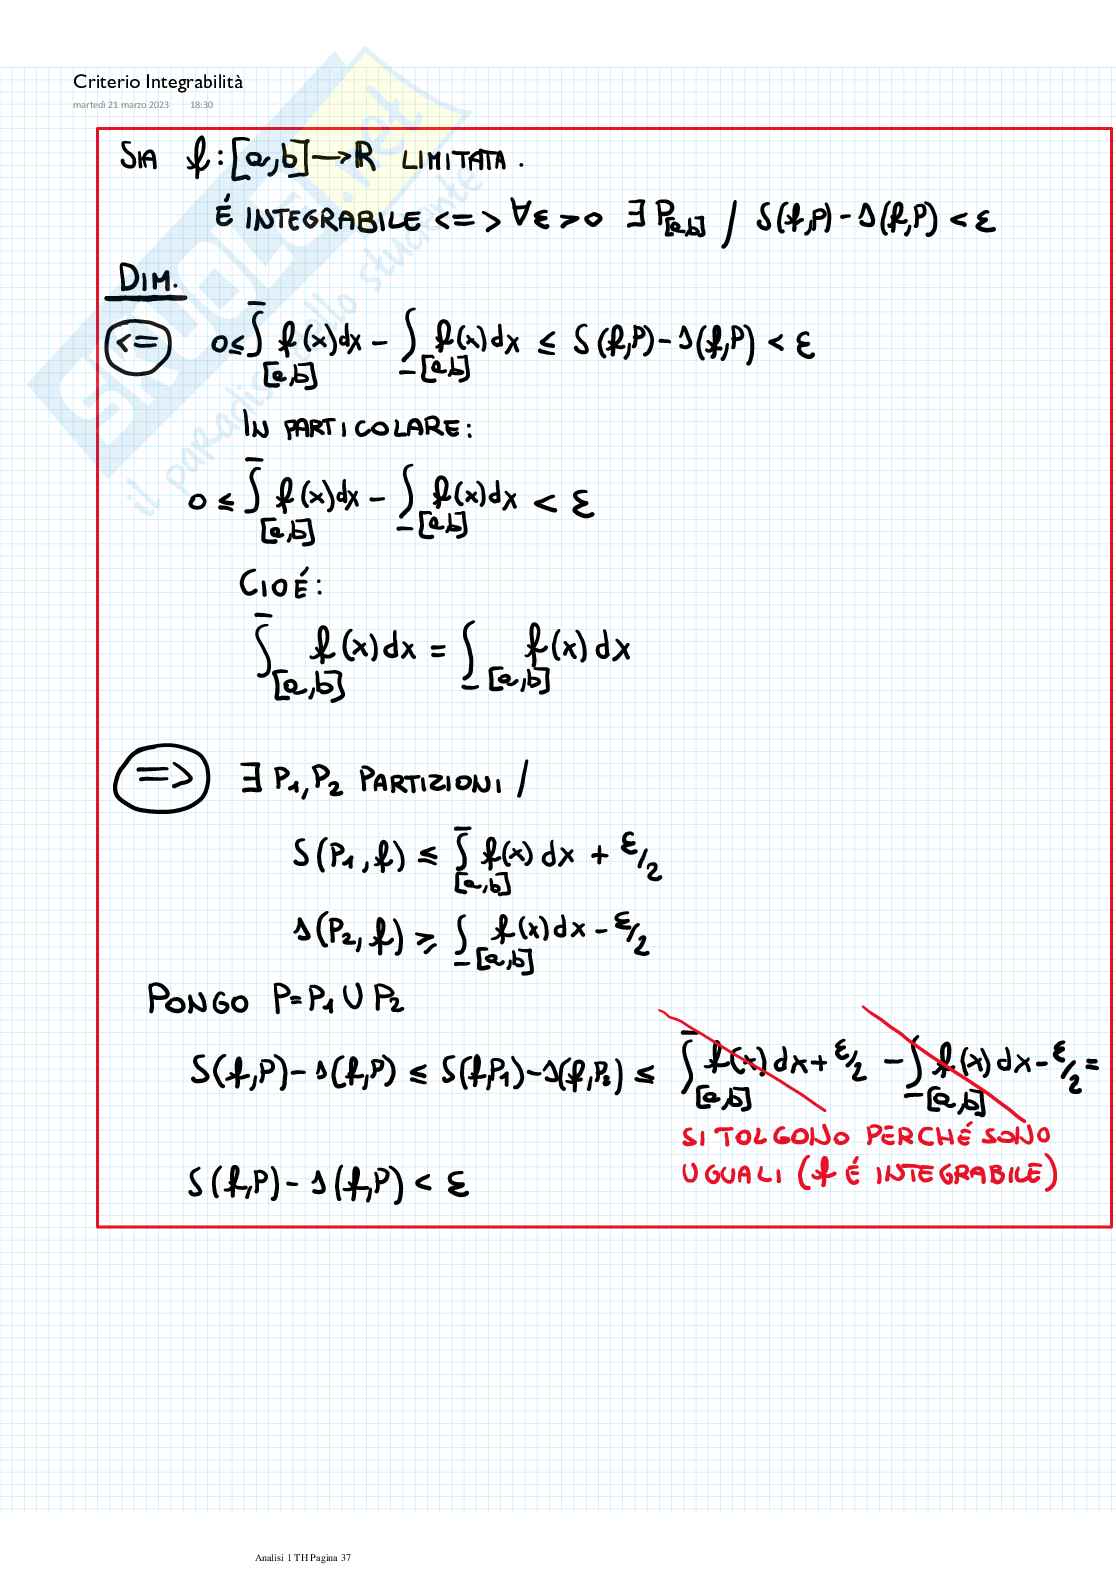 Criterio Integrabilità
martedì 21 marzo 2023 18:30
SIA f: [a,b] → R LIMITATA.
É INTEGRABILE <=> ∀ε>0 ∃ P[a,b] / S(f,P) - s(f,P) < ε
DIM.
<= 0 ≤ ∫̅[a,b] f(x)dx - ∫̲[a,b] f(x)dx ≤ S(f,P) - s(f,P) < ε
IN PARTICOLARE:
0 ≤ ∫̅[a,b] f(x)dx - ∫̲[a,b] f(x)dx < ε
CIOÉ:
∫̅[a,b] f(x)dx = ∫̲[a,b] f(x)dx
=> ∃ P1, P2 PARTIZIONI /
S(P1, f) ≤ ∫̅[a,b] f(x)dx + ε/2
s(P2, f) ≥ ∫̲[a,b] f(x)dx - ε/2
PONGO P = P1 ∪ P2
S(f,P) - s(f,P) ≤ S(f,P1) - s(f,P2) ≤ ∫̅[a,b] f(x)dx + ε/2 - ∫̲[a,b] f(x)dx - ε/2 =
SI TOLGONO PERCHÉ SONO
UGUALI (f É INTEGRABILE)
S(f,P) - s(f,P) < ε
SKUOLA.net
il paradiso dello studente
Analisi 1 TH Pagina 37